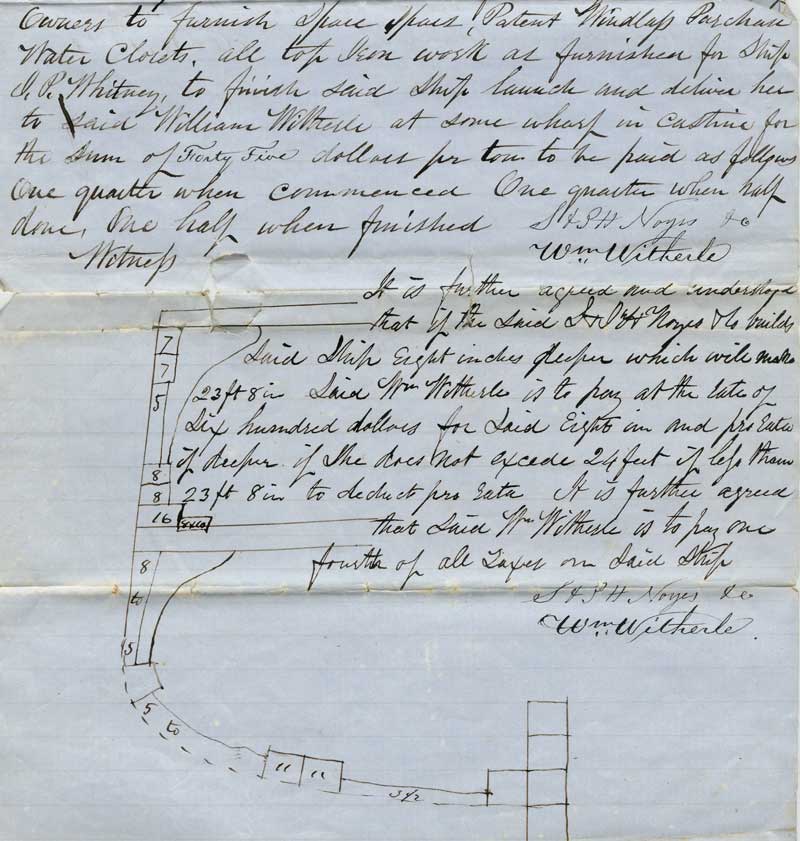 Owners to furnish Spare Spars, Patent Windlass Purchase
Water Closets, all top Iron work as furnished for Ship
J. P. Whitney, to finish said Ship launch and deliver her
to said William Witherle at some wharf in Castine for
the Sum of Forty Five dollars per ton to be paid as follows
One quarter when commenced One quarter when half
done, One half when finished S & J H Noyes & Co
Witness Wm Witherle
It is further agreed and understood
that if the said S & J H Noyes & Co builds
Said Ship Eight inches deeper which will make
23 ft 8 in Said Wm Witherle is to pay at the Rate of
Six hundred dollars for Said Eight in and pro Rata
if deeper if She does not excede 24 feet if less than
23 ft 8 in to deduct pro Rata It is further agreed
that Said Wm Witherle is to pay one
fourth of all Taxes on Said Ship
S & J H Noyes & Co
Wm Witherle.
7
7
5
8
8
16
8
to
5
5 to
11 11
3 1/2